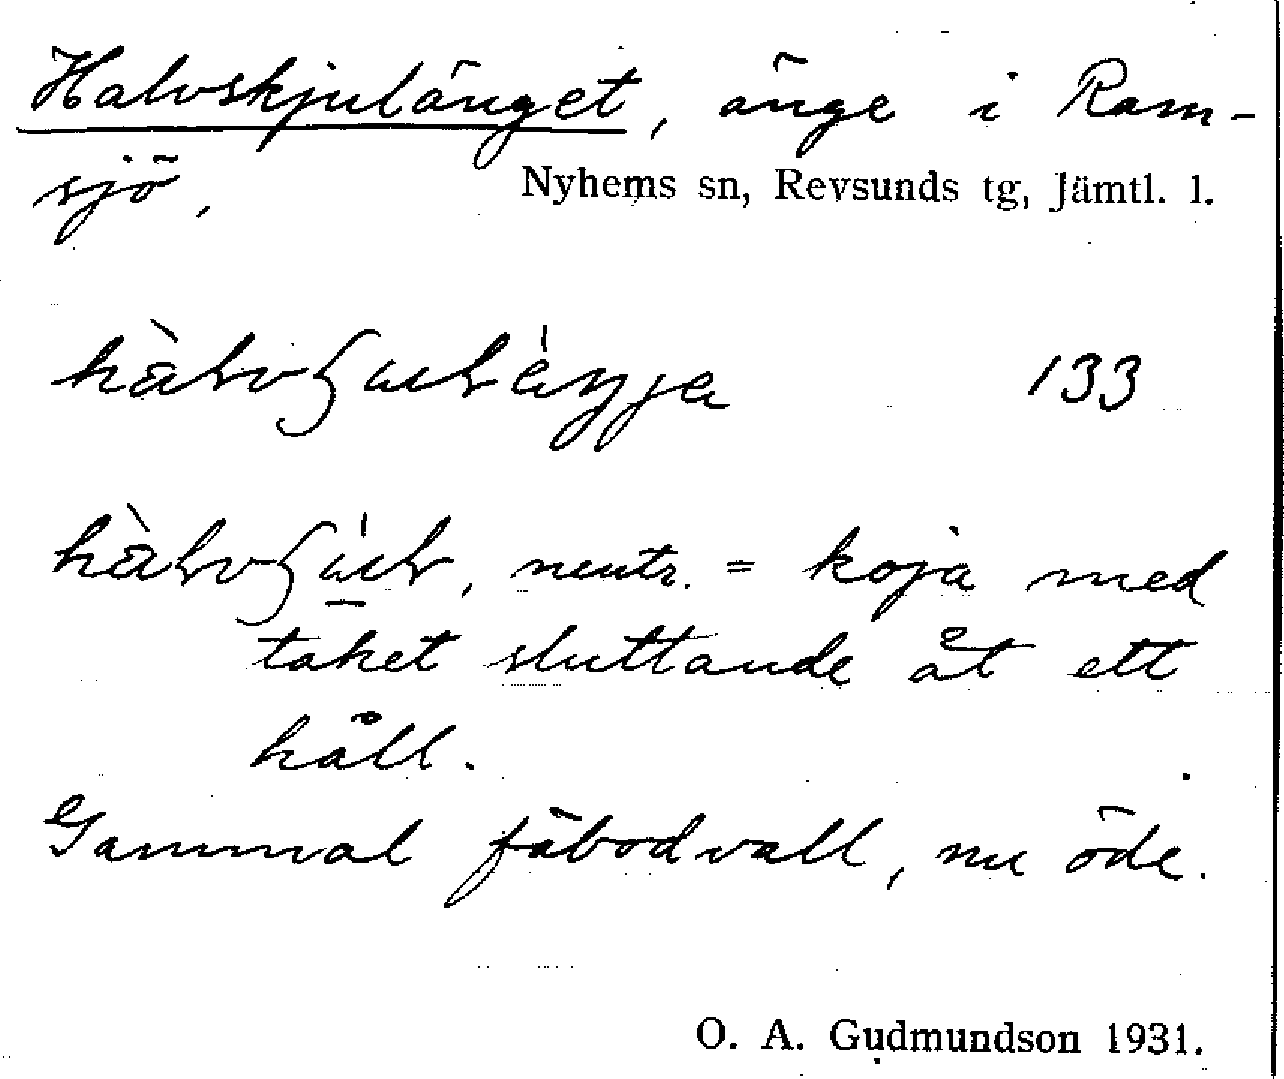 Halvskjulänget, änge i Ram-
sjö, Nyhems sn, Revsunds tg, Jämtl. l.
133
neutr. = koja med
taket sluttande åt ett
håll.
Gammal fäbodvall, nu öde.
O. A. Gudmundson 1931.